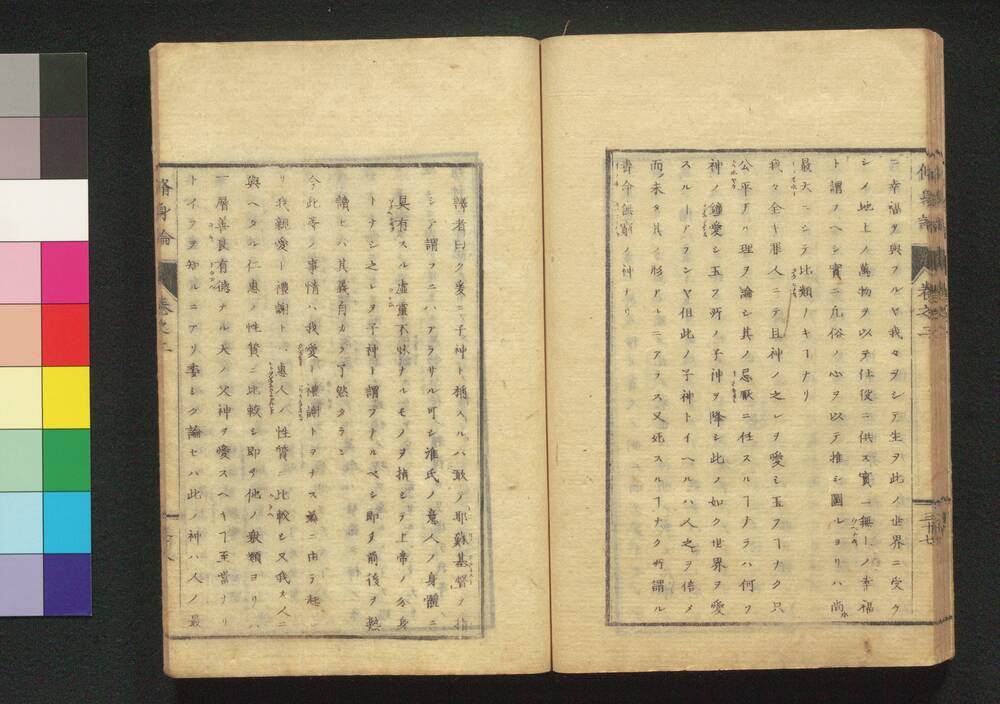 ニ幸福ヲ與フルヤ我々ヲシテ生ヲ此ノ世界ニ受ケ
シノ地上ノ萬物ヲ以テ仕役ニ供ス實ニ無上ノ幸福
ト謂フヘシ實ニ凡俗ノ心ヲ以テ推シ圖レヨリハ尚
最大ニシテ比類ノキヿナリ
我々全キ罪人ニテ且神ノ之レヲ愛シ玉フヿナク只
公平ナル理ヲ論シ其ノ忌厭ニ任スルヿナラハ何ゾ
神ノ鐘愛シ玉フ所ノ子神ヲ降シ此ノ如ク世界ヲ愛
スルヿアランヤ但此ノ子神トイヘルハ人之ヲ倍メ
而ノ未タ其ノ形アルニアラス又死スルヿナク所謂ル
壽命無窮ノ神ナリ
修身論 卷之二
三十七
譯者曰ク爰ニ子神ト稱スルハ敢ノ耶蘇基督ヲ指
シテ謂フニハアラサル可シ淮氏ノ意人ノ身體ニ
具有スル虛靈不昧ナルモノヲ指シテ上帝ノ分身
トナシ之レヲ子神ト謂フナルベシ即チ前後ヲ熟
讀セハ其義自カラ了然タラン
今ヤ此等ノ事情ハ我愛ト禮謝トヲナスニ由テ起
リ我親愛ト禮謝トハ惠人ノ性質ニ比較シ又我夫人ニ
與ヘタル仁惠ノ性質ニ比較シ即チ他ノ親類ヨリハ
一層善良有德ナル天ノ父神ヲ愛スヘキヿ至當ナリ
トイヲヲ知ルニアリ委シク論セハ此ノ神ハ人ノ最
修身論 卷之二